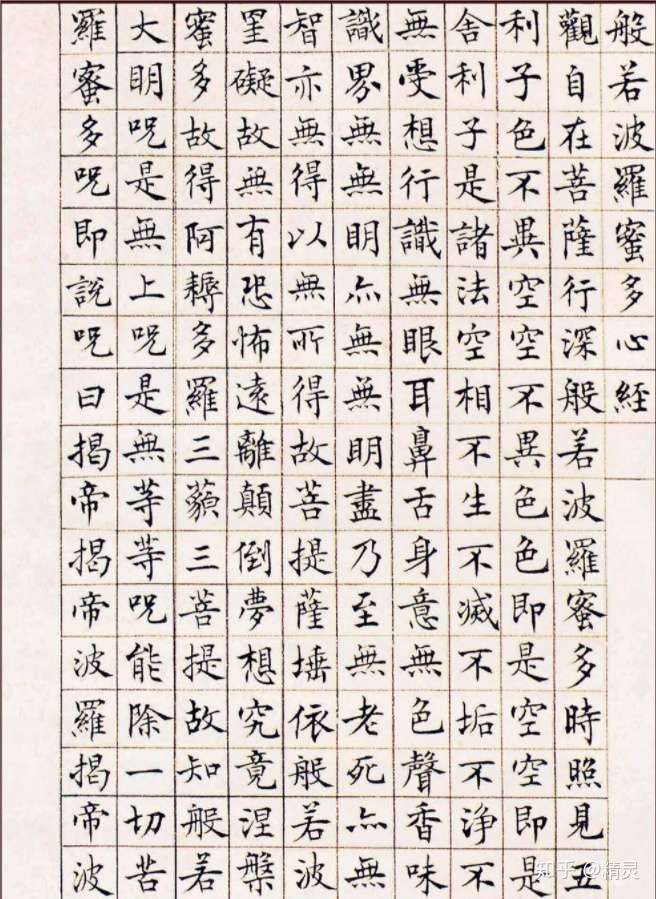 般若波羅蜜多心経
觀自在菩薩行深般若波羅蜜多時照見五
利子色不異空空不異色色即是空空即是
舍利子是諸法空相不生不滅不垢不淨不
無受想行識無眼耳鼻舌身意無色聲香味
識界無無明亦無無明盡乃至無老死亦無
智亦無得以無所得故菩提薩埵依般若波
罣礙故無有恐怖遠離顛倒夢想究竟涅槃
蜜多故得阿耨多羅三藐三菩提故知般若
大明呪是無上呪是無等等呪能除一切苦
羅蜜多呪即說呪曰揭帝揭帝波羅揭帝波
知乎 @精灵